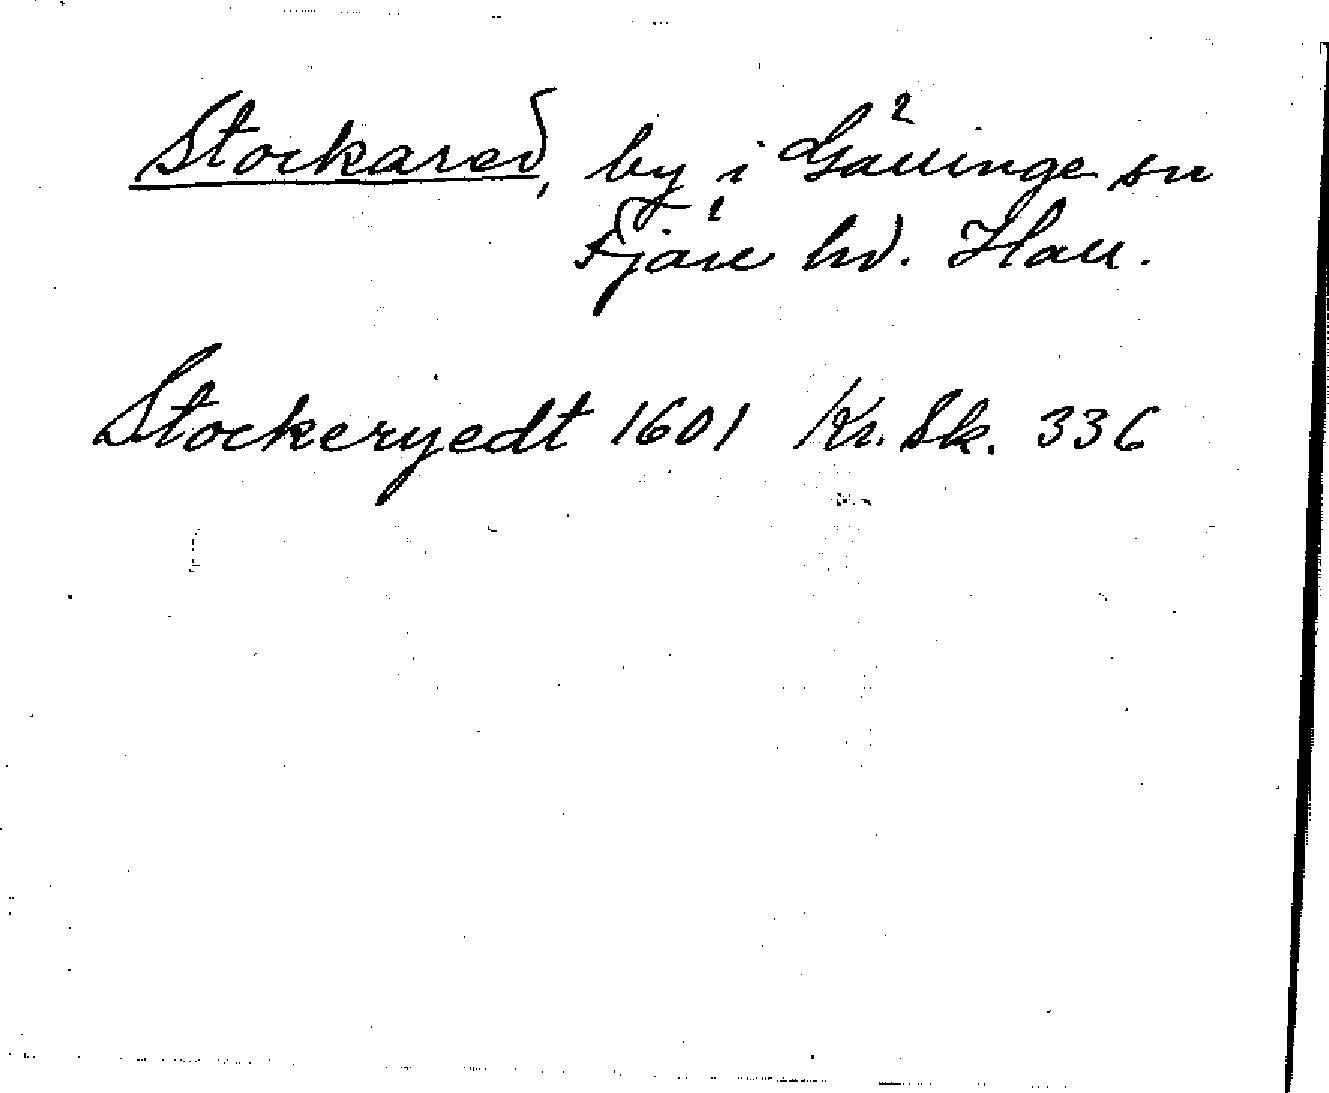 Stockared, by i Gällinge sn
Fjäre hd. Hall.
Stockeryedt 1601 Kr. Sk. 336